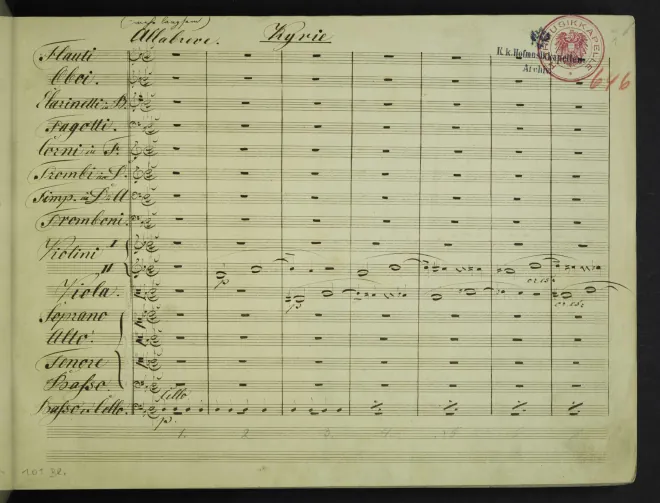 (mehr langsam)
Allabreve. Kyrie
K.k. Hofmusikkapellen-
Archiv
MUSIKKAPELLE
616
Flauti
Oboi.
Clarinetti in B.
Fagotti.
Corni in F.
Trombi in D.
Timp. in D u A
Tromboni.
Violini I
II
Viola.
p
cresc.
p
cresc.
Soprano
Alto.
Tenore
Basso.
Cello
Basso e Cello.
p.
1. 2 3. 4